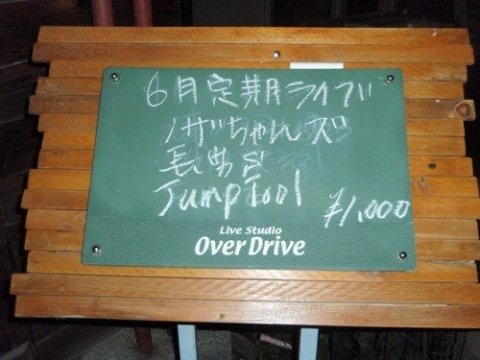 6月定期ライブ
ノザちゃんズ
Jump Fool
¥1,000
Live Studio
Over Drive